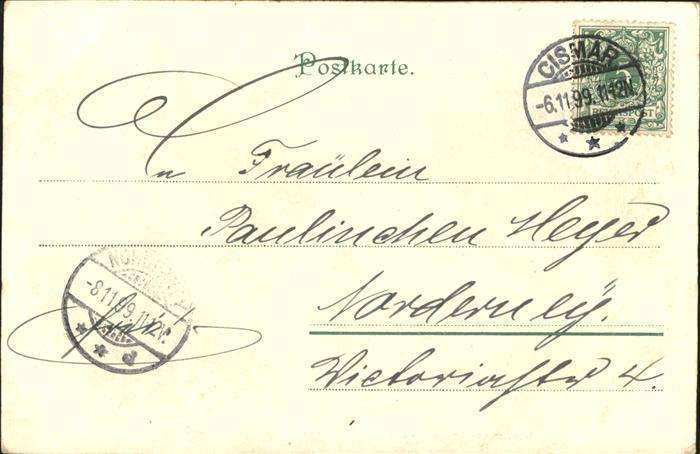 Postkarte.
CISMAR
-6.11.99.11-12V.
5
REICHSPOST
An Fräulein
Paulinchen Heyer
Norderney.
Victoriastr 4.
-8.11.99.11-12V.
frei.